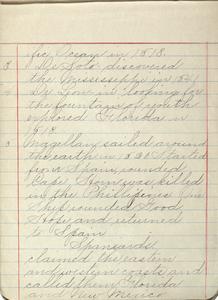 fic Ocean in 1513.
3 De Soto discovered
the Mississippi in 1541
4 De Leon in looking for
the fountain of youth
explored Florida in
1513
5 Magellan sailed around
the earth in 1520 Started
from Spain rounded
Cape Horn was killed
in the Philipines
Ship rounded Good
Hope and returned
to Spain
Spaniards
claimed the eastern
and western coasts and
called them Florida
and New Mexico